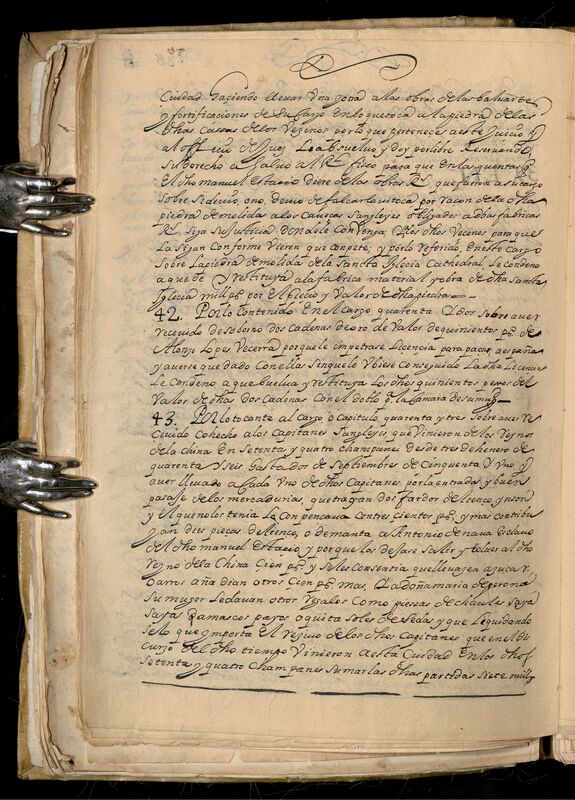 Ciudad haciendo llevar una para a las obras de las baluartes
y fortificaciones de su cargo En lo que toca a la piedra de las
dhas cassas de los Vezinos por lo que pertenece a este Juicio y
al officio de Juez Lo absuelvo y doy por libre Reservando
su derecho a salvo al Rl fisco para que En las quentas q
El dho manuel estacio diere de las obras Rs que fueron a su cargo
sobre si devio, o no, devio de falcar la vitoca por racon de la dha
piedra de molida a los Cavecas Sangleyes obligados a dhas fabricas
Rs siga su Justicia donde le Convenga; Y los dhos Vecinos para que
La sigan Conforme Vieren que conpete; y por lo referido, En este Cargo
sobre La piedra de molida de la Sancta Iglecia Cathedral Le condeno
a que de y restituya a la fabrica material y obra de dha sancta
Iglecia mill ps por El precio y Valor de dha piedra
42. Por lo Contenido En el Cargo quarenta y dos sobre aver
recevido de soborno dos cadenas de oro de Valor de quinientos ps de
Alonso Lopes Vecerra porque le impetrase Licencia para pasar a españa
y averse quedado Con ellas sin que le Ubiese Conseguido La dha Licencia
Le Condeno a que buelva y restituya Los dhos quinientos pesos del
Valor de dhas dos Cadenas Con el doblo pa la Camara de su magd
43. Por lo tocante al Cargo, o Capitulo, quarenta y tres sobre aver Re
cevido Cohecho a los Capitanes Sangleyes, que Vinieron de los Reynos
de la China En setenta y quatro champanes desde tres de henero de
quarenta y seis hasta dos de septiembre de Cinquenta y Uno, y
aver llevado a cada Uno de dhos Capitanes por la entrada y buen
pasaje de los mercadurias, que traygan dos fardos de lienco, y non
y El que no los tenia Lo Conpencava Con trescientos ps, y mas contribu
yan dies piecas de lienco, o de manta a Antonio de nava esclavo
del dho manuel Estacio y porque los dejase salir y bolver al dho
Reyno de la China Cien ps y si les consentia que llevasen açucar
o arros añadian otros Cien ps mas, Y a Doña maria de corona
su muger Le davan otros regalos Como piecas de chaules saya
sayas Damascos payos o quitasoles de sedas y que liquidando
se lo que importa El resivo de los dhos Capitanes que en el dis
curso del dho tiempo Vinieron a esta Ciudad En los dhos
setenta y quatro Champanes sumarlas dhas partidas siete mill